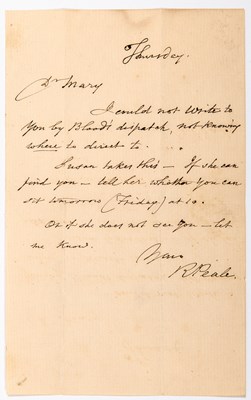 Thursday.
Dr Mary
I could not write to
you by Blood's despatch, not knowing
where to direct to.
Susan takes this — If she can
find you — tell her whether you can
sit tomorrow (Friday) at 10.
Or if she does not see you — let
me know.
Yours
R Peale.